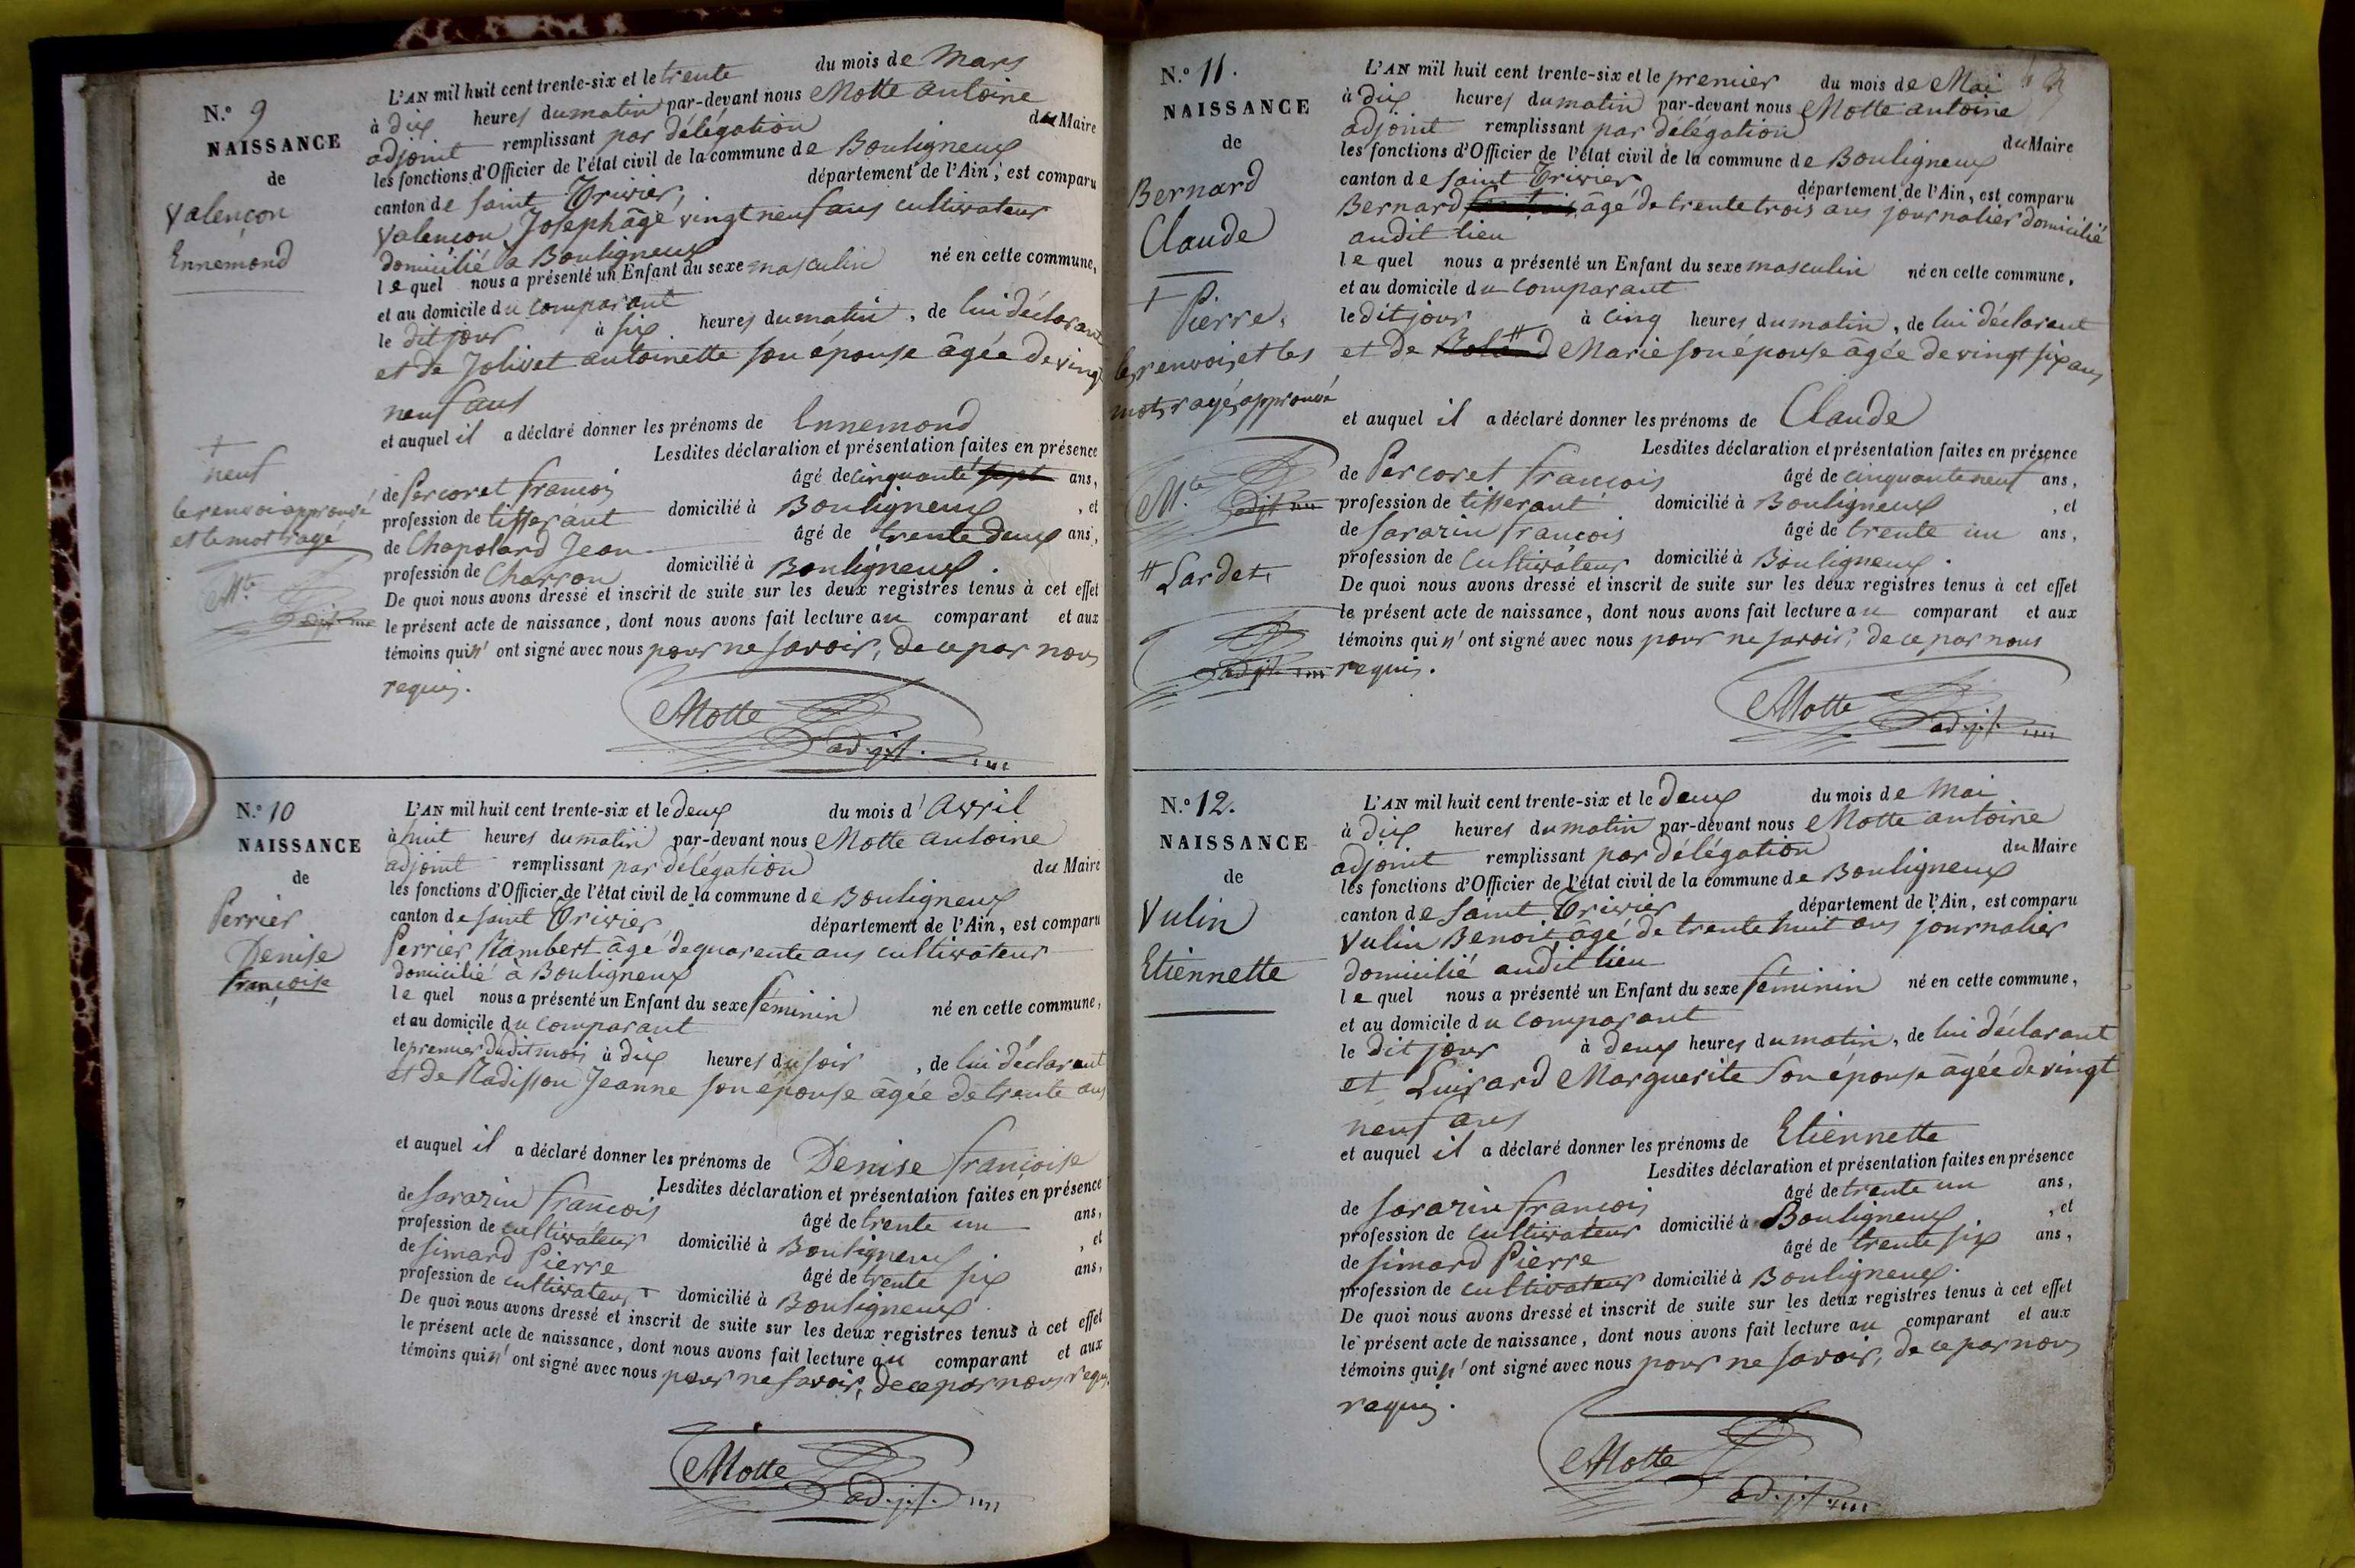 N.º 9
NAISSANCE
de
Valençon
Ennemond
L'AN mil huit cent trente-six et le trente du mois de Mars
à dix heures du matin par-devant nous Motte antoine
adjoint remplissant par délégation du Maire
les fonctions d'Officier de l'état civil de la commune de Bouligneux
canton de Saint Trivier, département de l'Ain, est comparu
Valencon Joseph âgé vingt neuf ans cultivateur
domicilié à Bouligneux
lequel nous a présenté un Enfant du sexe masculin né en cette commune,
et au domicile du comparant
le dit jour à six heures du matin, de lui déclarant
et de Jolivet antoinette son épouse âgée de vingt
neuf ans
et auquel il a déclaré donner les prénoms de Ennemond
Lesdites déclaration et présentation faites en présence
de Percoret francois âgé de cinquante sept ans,
profession de tisserant domicilié à Bouligneux, et
de Chapolard Jean âgé de trente deux ans,
profession de Charron domicilié à Bouligneux.
De quoi nous avons dressé et inscrit de suite sur les deux registres tenus à cet effet
le présent acte de naissance, dont nous avons fait lecture au comparant et aux
témoins qui n'ont signé avec nous pour ne savoir, de ce par nous
requis.
Motte
adjt.
+
neuf
le renvoi approuvé
et le mot rayé
Mte
adjt
N.º 10
NAISSANCE
de
Perrier
Denise
françoise
L'AN mil huit cent trente-six et le deux du mois d'Avril
à huit heures du matin par-devant nous Motte antoine
adjoint remplissant par délégation du Maire
les fonctions d'Officier de l'état civil de la commune de Bouligneux
canton de Saint Trivier département de l'Ain, est comparu
Perrier Rambert âgé de quarente ans cultivateur
domicilié à Bouligneux
lequel nous a présenté un Enfant du sexe féminin né en cette commune,
et au domicile du comparant
le premier dudit mois à dix heures du soir, de lui déclarant
et de Radisson Jeanne son épouse âgée de trente ans
et auquel il a déclaré donner les prénoms de Denise françoise
Lesdites déclaration et présentation faites en présence
de Sarazin francois âgé de trente un ans,
profession de cultivateur domicilié à Bouligneux, et
de Simard Pierre âgé de trente six ans,
profession de cultivateur domicilié à Bouligneux.
De quoi nous avons dressé et inscrit de suite sur les deux registres tenus à cet effet
le présent acte de naissance, dont nous avons fait lecture au comparant et aux
témoins qui n'ont signé avec nous pour ne savoir, de ce par nous requis.
Motte
adjt.
N.º 11.
NAISSANCE
de
Bernard
Claude
+ Pierre,
les renvois, et les
mots rayés, approuvé
Mte
adjt
# Lardet
adjt
L'AN mil huit cent trente-six et le premier du mois de Mai
à dix heures du matin par-devant nous Motte antoine
adjoint remplissant par délégation du Maire
les fonctions d'Officier de l'état civil de la commune de Bouligneux
canton de Saint Trivier département de l'Ain, est comparu
Bernard âgé de trente trois ans journalier domicilié
audit lieu
lequel nous a présenté un Enfant du sexe masculin né en cette commune,
et au domicile du comparant
le dit jour à cinq heures du matin, de lui déclarant
et de Marie son épouse âgée de vingt six ans
et auquel il a déclaré donner les prénoms de Claude
Lesdites déclaration et présentation faites en présence
de Percoret francois âgé de cinquante neuf ans,
profession de tisserant domicilié à Bouligneux, et
de Sarazin francois âgé de trente un ans,
profession de Cultivateur domicilié à Bouligneux.
De quoi nous avons dressé et inscrit de suite sur les deux registres tenus à cet effet
le présent acte de naissance, dont nous avons fait lecture au comparant et aux
témoins qui n'ont signé avec nous pour ne savoir, de ce par nous
requis.
Motte
adjt.
N.º 12.
NAISSANCE
de
Vulin
Etiennette
L'AN mil huit cent trente-six et le deux du mois de Mai
à dix heures du matin par-devant nous Motte antoine
adjoint remplissant par délégation du Maire
les fonctions d'Officier de l'état civil de la commune de Bouligneux
canton de Saint Trivier département de l'Ain, est comparu
Vulin Benoit, âgé de trente huit ans journalier
domicilié audit lieu
lequel nous a présenté un Enfant du sexe féminin né en cette commune,
et au domicile du comparant
le dit jour à deux heures du matin, de lui déclarant
et Luisard Marguerite son épouse âgée de vingt
neuf ans
et auquel il a déclaré donner les prénoms de Etiennette
Lesdites déclaration et présentation faites en présence
de Sarazin francois âgé de trente un ans,
profession de cultivateur domicilié à Bouligneux, et
de Simard Pierre âgé de trente six ans,
profession de cultivateur domicilié à Bouligneux.
De quoi nous avons dressé et inscrit de suite sur les deux registres tenus à cet effet
le présent acte de naissance, dont nous avons fait lecture au comparant et aux
témoins qui n'ont signé avec nous pour ne savoir, de ce par nous
requis.
Motte
adjt.